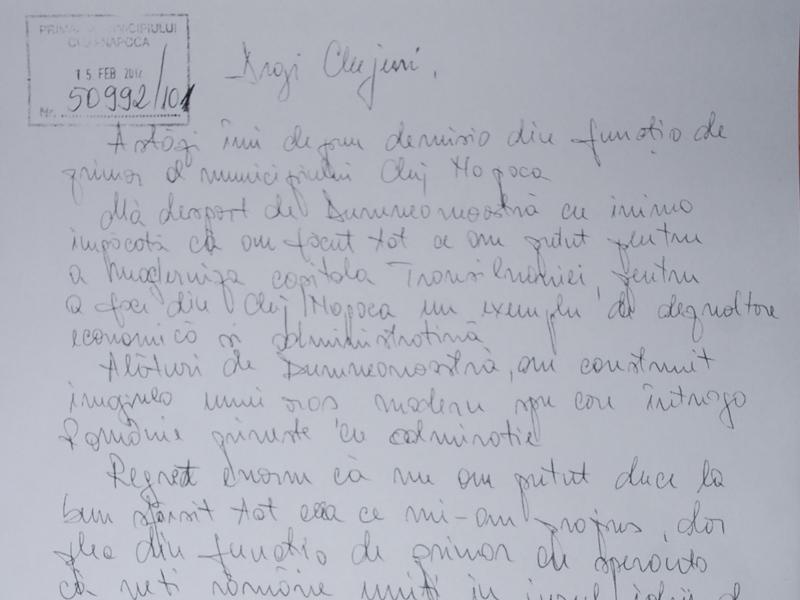 PRIMĂRIA MUNICIPIULUI
CLUJ-NAPOCA
15. FEB 2012
Nr. 50992/101
Dragi Clujeni,
Astăzi îmi depun demisia din funcția de
primar al municipiului Cluj Napoca
Mă despart de Dumneavoastră cu inima
împăcată că am făcut tot ce am putut pentru
a moderniza capitala Transilvaniei, pentru
a face din Cluj Napoca un exemplu de dezvoltare
economică și administrativă
Alături de Dumneavoastră, am construit
imaginea unui oraș modern spre care întreaga
Românie privește cu admirație
Regret enorm că nu am putut duce la
bun sfârșit tot ceea ce mi-am propus, dar
plec din funcția de primar cu speranța
că veți rămâne uniți în jurul ideii d